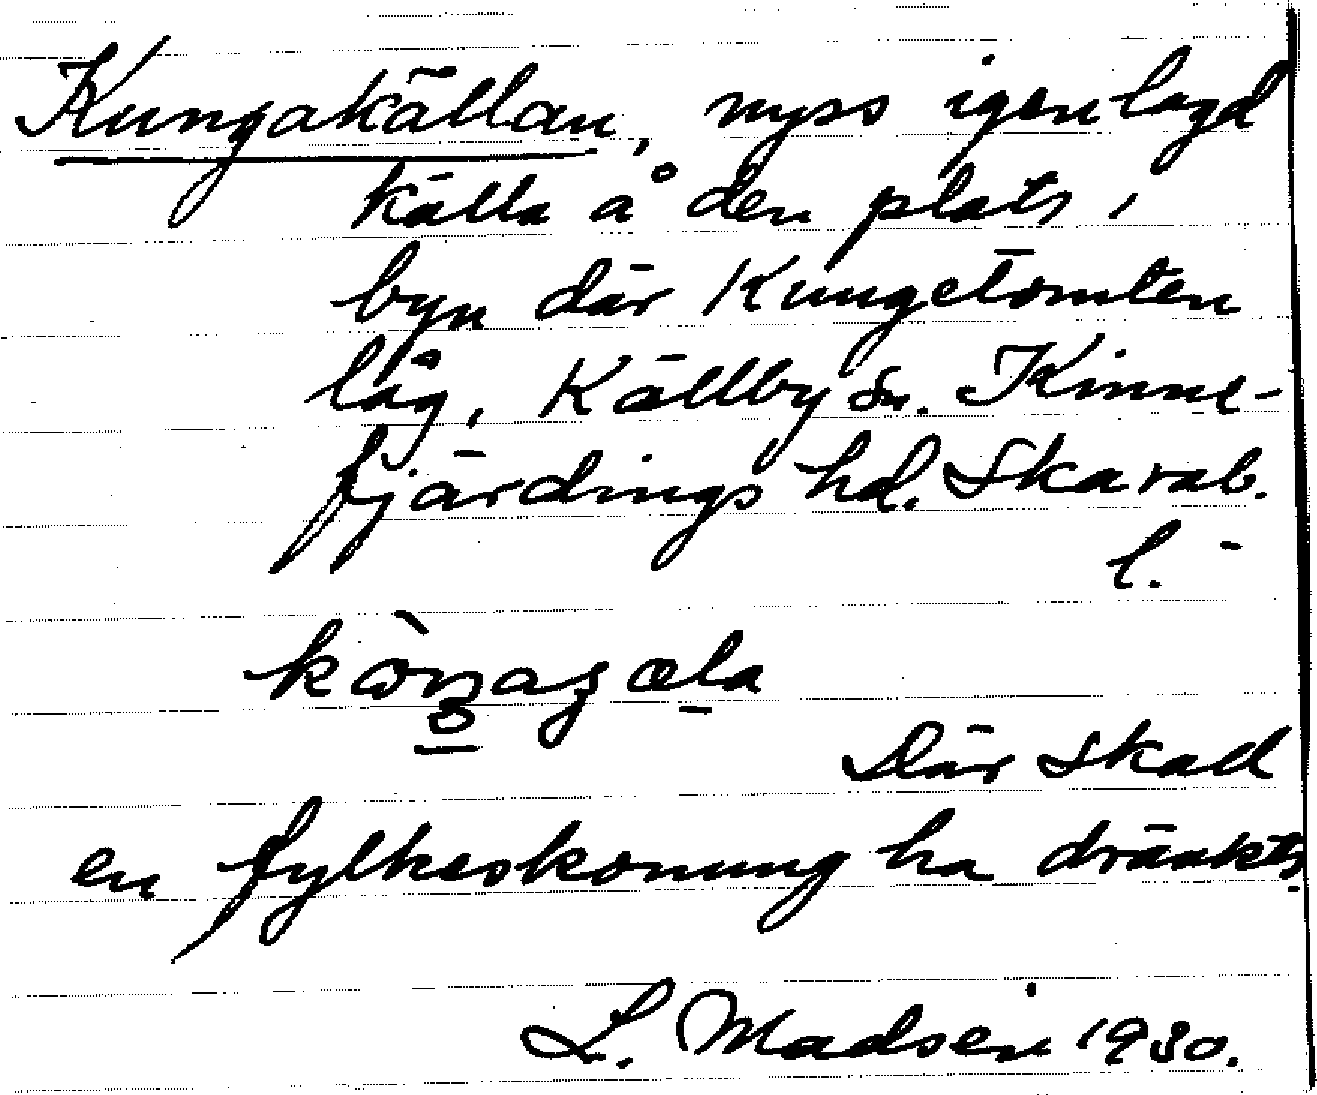 Kungakällan, nyss igenlagd
källa å den plats i
byn där Kungetomten
låg, Källby sn. Kinne-
fjärdings hd. Skarab.
l.
Där skall
en fylkeskonung ha dränkts.
L. Madsen 1930.